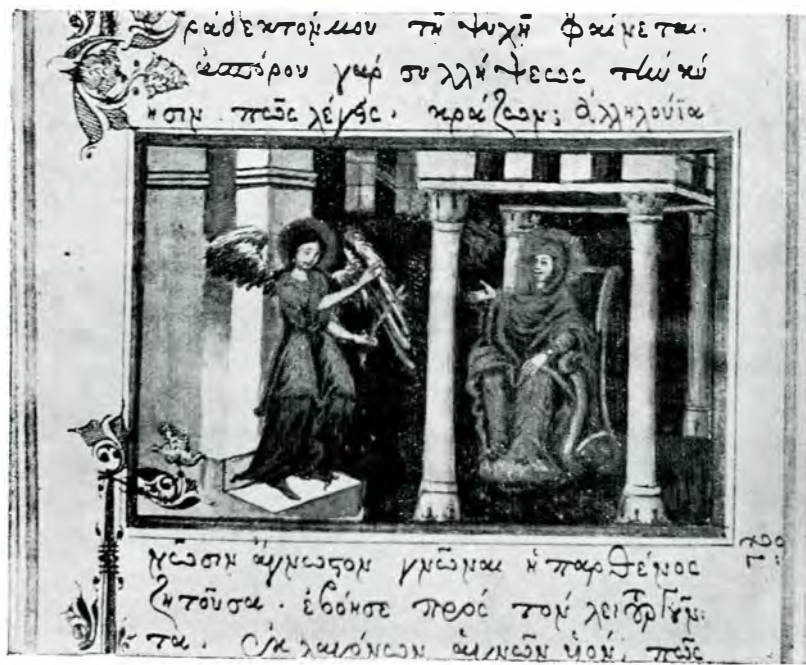 ράδεκτόν μου τῇ ψυχῇ φαίνεται.
ἀσπόρου γὰρ συλλήψεως τὴν κύ
ησιν πῶς λέγεις. κράζων; ἀλληλούϊα
νῶσιν ἄγνωστον γνῶναι ἡ παρθένος
ζητοῦσα. ἐβόησε πρὸς τὸν λειτουργοῦν
τα. Ἐκ λαγόνων ἁγνῶν υἱόν, πῶς